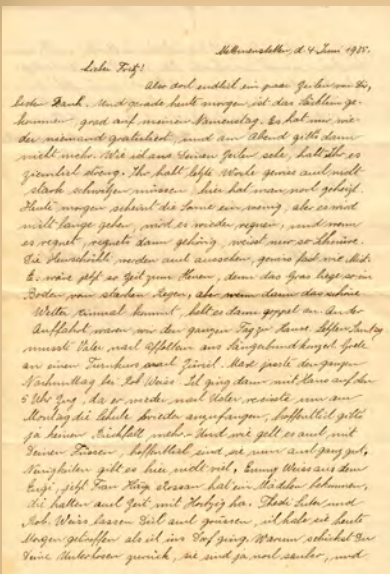 Mettmenstetten, d. 4. Juni 1935.
Lieber Fritz!
Also doch endlich ein paar Zeilen von Dir,
besten Dank. Und gerade heute morgen ist das Säcklein ge-
kommen, grad auf meinen Namenstag. Es hat mir wie-
der niemand gratuliert, und am Abend gilts dann
nicht mehr. Wie ich aus Deinen Zeilen sehe, habt Ihr es
ziemlich streng. Ihr habt letzte Woche gewiss auch nicht
stark schwitzen müssen, hier hat man noch geheizt.
Heute morgen scheint die Sonne ein wenig, aber es wird
nicht lange gehen, wird es wieder regnen, und wenn
es regnet, regnets dann gehörig, weisst nur so
Die werden auch aussehen, gewiss fast wie Mist.
Es wäre jetzt so Zeit zum Heuen, denn das Gras liege so im
Boden vom starken Regen, aber wenn dann das schöne
Wetter einmal kommt, heit es dann goppel an. An der
Auffahrt waren wir den ganzen Tag zu Hause. Letzten Sonntag
musste Vater nach Affoltern ans Sängerbundkonzert, Gretle
an einen Turnkurs nach Zürich. Max jasste den ganzen
Nachmittag bei Rob. Weiss. Ich ging dann mit Hans auf den
5 Uhr Zug, da er wieder nach Uster reiste um am
Montag die Lehre wieder anzufangen, hoffentlich gibts
ja keinen Rückfall mehr. - Und wie geht es auch mit
Deinen Füssen, hoffentlich sind sie nun auch ganz gut,
Neuigkeiten gibt es hier nicht viel, Emmy Weiss aus dem
jetzt Frau Haig Rossau hat ein Mädchen bekommen,
die hatten auch Zeit mit Hochzig ha. Thedi Suter und
Rob. Weiss lassen Dich auch grüssen, ich habe sie heute
Morgen getroffen als ich ins Dorf ging. Warum schickst Du
Deine Unterhosen zurück, sie sind ja noch sauber, und